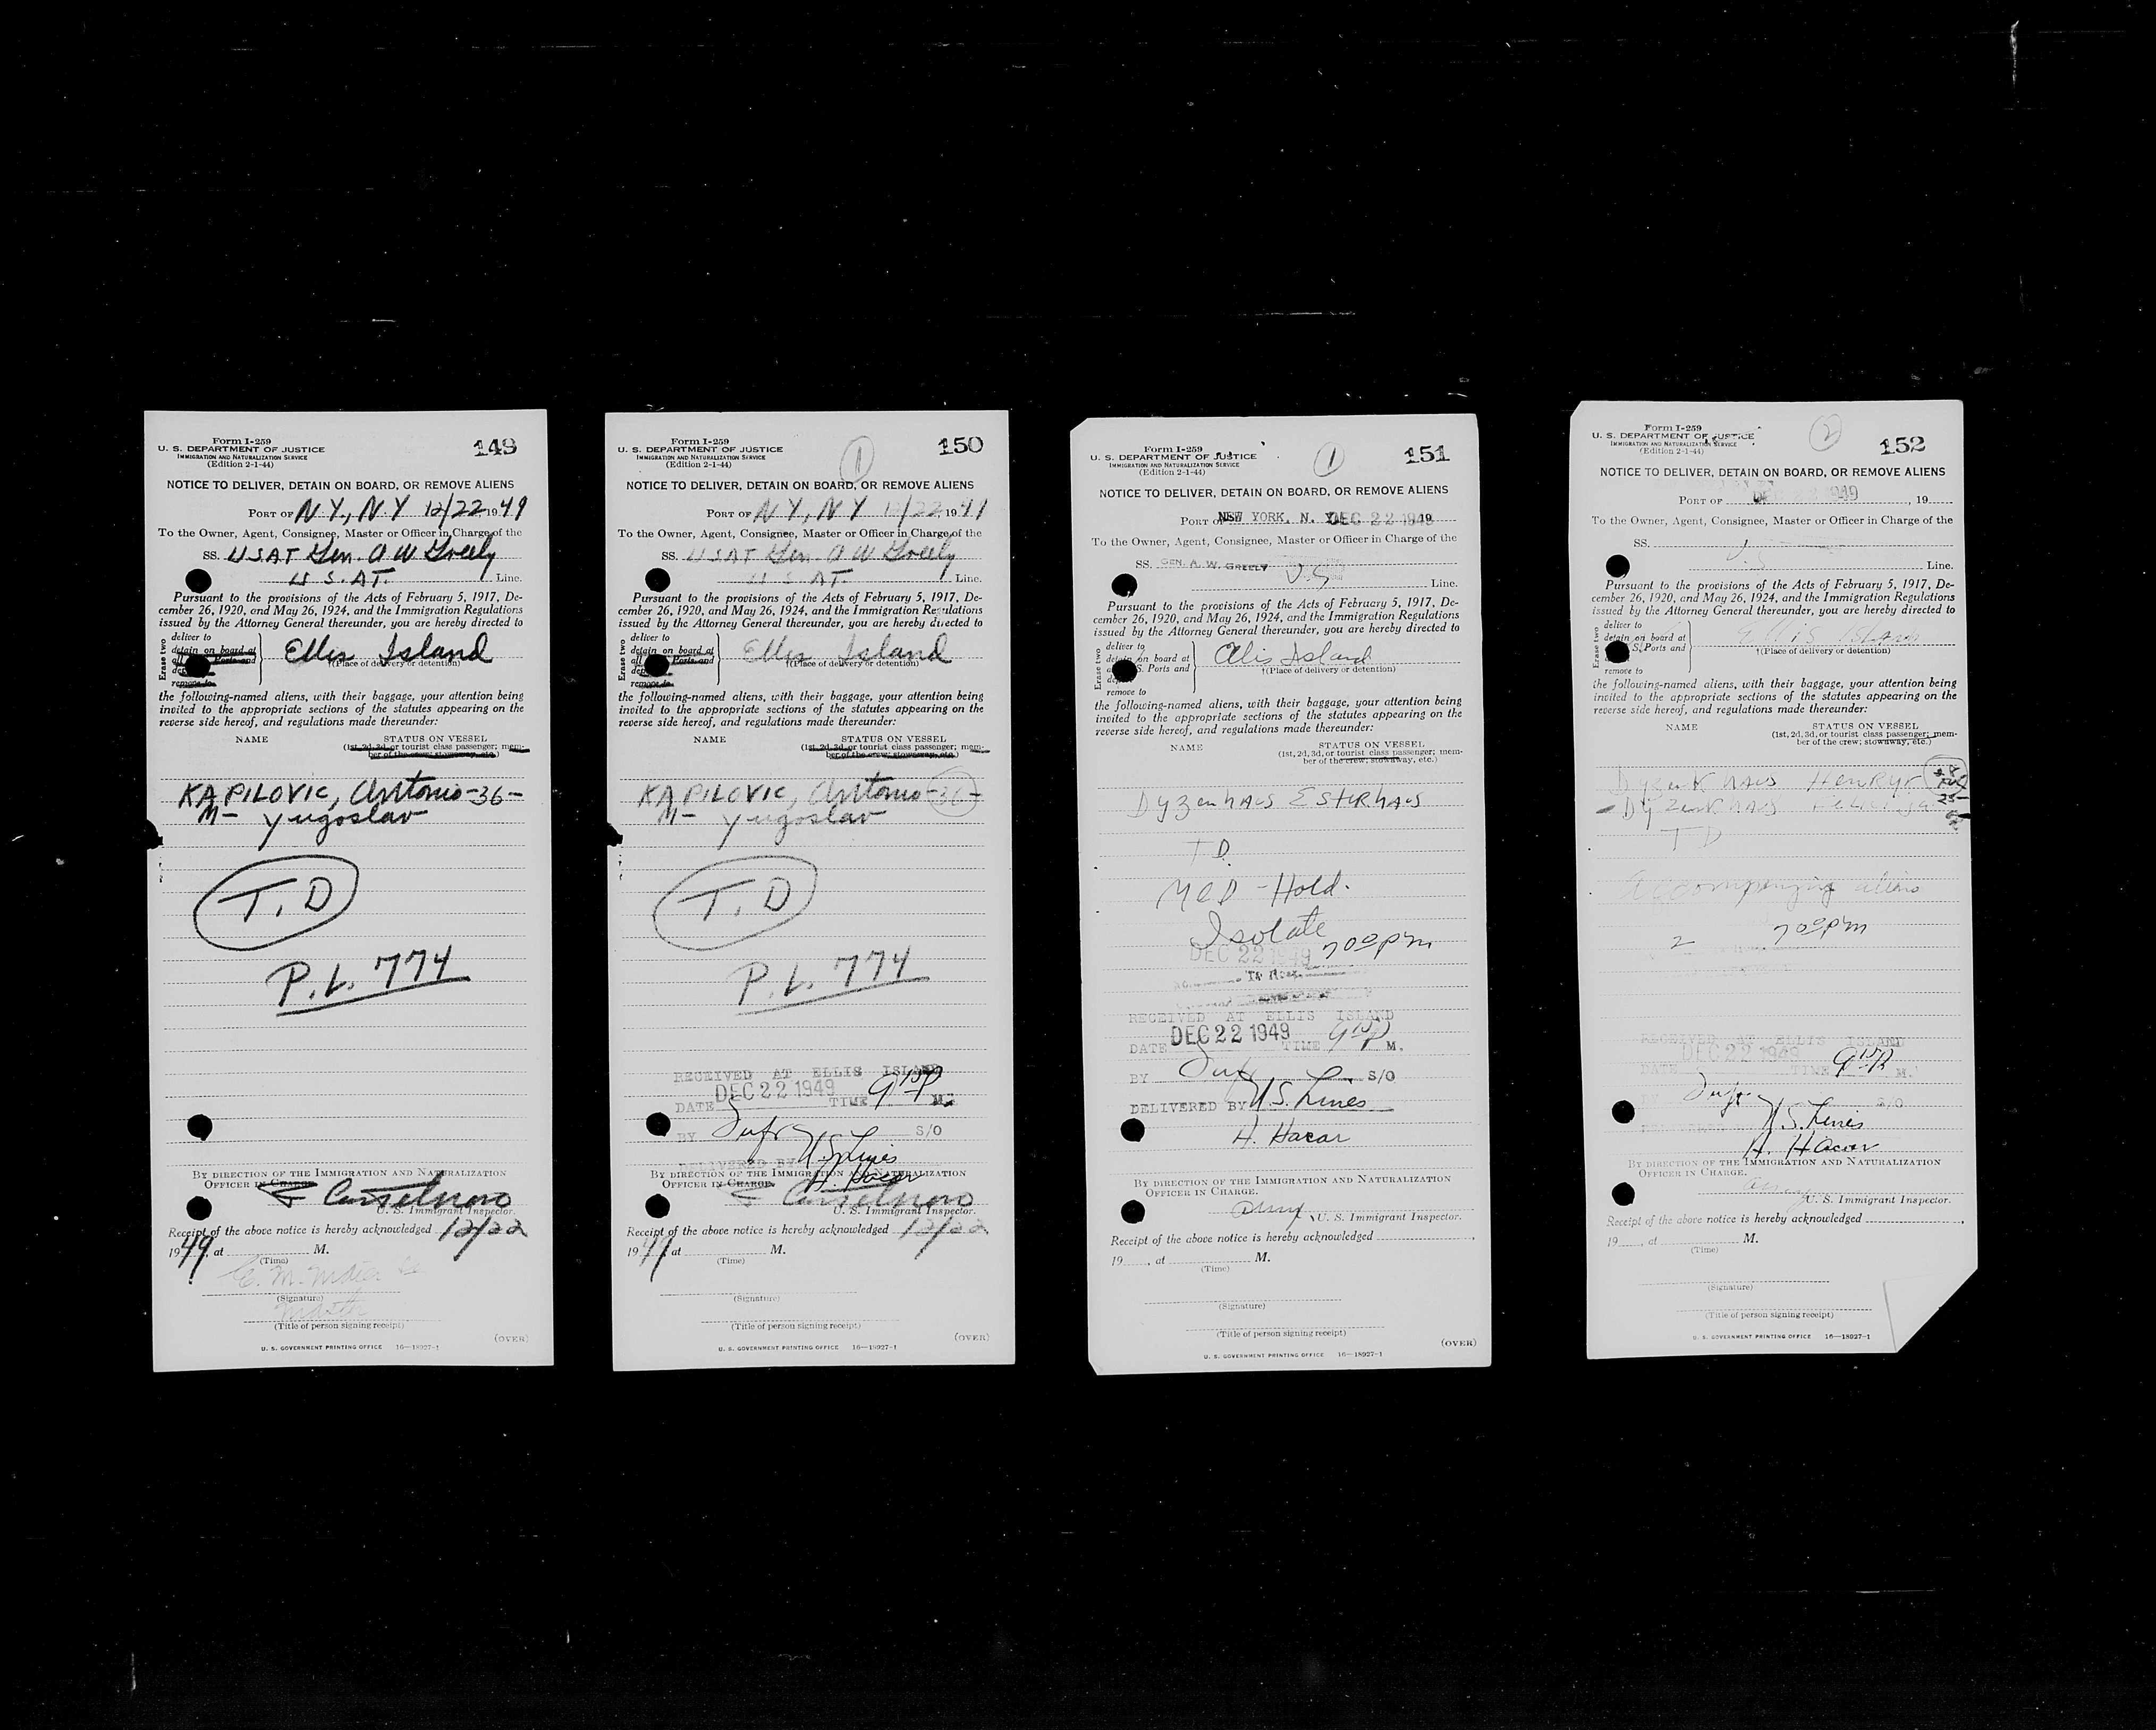 Form I-259
U. S. DEPARTMENT OF JUSTICE
IMMIGRATION AND NATURALIZATION SERVICE
(Edition 2-1-44)
149
NOTICE TO DELIVER, DETAIN ON BOARD, OR REMOVE ALIENS
PORT OF N.Y., N Y 12/22 1949
To the Owner, Agent, Consignee, Master or Officer in Charge of the
SS. USAT Gen. A W Greely
U S. AT. Line.
Pursuant to the provisions of the Acts of February 5, 1917, De-
cember 26, 1920, and May 26, 1924, and the Immigration Regulations
issued by the Attorney General thereunder, you are hereby directed to
Erase two
deliver to
detain on board at
Ports and
remove to
Ellis Island
†(Place of delivery or detention)
the following-named aliens, with their baggage, your attention being
invited to the appropriate sections of the statutes appearing on the
reverse side hereof, and regulations made thereunder:
NAME STATUS ON VESSEL
(1st, 2d, 3d, or tourist class passenger; mem-
ber of the crew; stowaway, etc.)
KAPILOVIC, Antonio-36-
M- Yugoslav
T.D
P.L. 774
BY DIRECTION OF THE IMMIGRATION AND NATURALIZATION
OFFICER IN CHARGE.
U. S. Immigrant Inspector.
Receipt of the above notice is hereby acknowledged 12/22
1949, at M.
(Time)
(Signature)
Master
(Title of person signing receipt)
(OVER)
U. S. GOVERNMENT PRINTING OFFICE 16—18927-1
Form I-259
U. S. DEPARTMENT OF JUSTICE
IMMIGRATION AND NATURALIZATION SERVICE
(Edition 2-1-44)
1
150
NOTICE TO DELIVER, DETAIN ON BOARD, OR REMOVE ALIENS
PORT OF N Y, N Y 12/22 1949
To the Owner, Agent, Consignee, Master or Officer in Charge of the
SS. USAT Gen. A W Greely
U S AT. Line.
Pursuant to the provisions of the Acts of February 5, 1917, De-
cember 26, 1920, and May 26, 1924, and the Immigration Regulations
issued by the Attorney General thereunder, you are hereby directed to
Erase two
deliver to
detain on board at
Ports and
remove to
Ellis Island
†(Place of delivery or detention)
the following-named aliens, with their baggage, your attention being
invited to the appropriate sections of the statutes appearing on the
reverse side hereof, and regulations made thereunder:
NAME STATUS ON VESSEL
(1st, 2d, 3d, or tourist class passenger; mem-
ber of the crew; stowaway, etc.)
KAPILOVIC, Antonio-36-
M- Yugoslav
T.D
P.L. 774
RECEIVED AT ELLIS ISLAND
DATE DEC 22 1949 TIME 9 15 P M.
BY S/O
DELIVERED BY U.S. Lines
H. Hacar
BY DIRECTION OF THE IMMIGRATION AND NATURALIZATION
OFFICER IN CHARGE.
U. S. Immigrant Inspector.
Receipt of the above notice is hereby acknowledged 12/22
1949, at M.
(Time)
(Signature)
(Title of person signing receipt)
(OVER)
U. S. GOVERNMENT PRINTING OFFICE 16—18927-1
Form I-259
U. S. DEPARTMENT OF JUSTICE
IMMIGRATION AND NATURALIZATION SERVICE
(Edition 2-1-44)
1
151
NOTICE TO DELIVER, DETAIN ON BOARD, OR REMOVE ALIENS
PORT OF NEW YORK, N. Y. DEC 22 1949
To the Owner, Agent, Consignee, Master or Officer in Charge of the
SS. GEN. A. W. GREELY U.S
Line.
Pursuant to the provisions of the Acts of February 5, 1917, De-
cember 26, 1920, and May 26, 1924, and the Immigration Regulations
issued by the Attorney General thereunder, you are hereby directed to
Erase two
deliver to
detain on board at
S. Ports and
remove to
Island
†(Place of delivery or detention)
the following-named aliens, with their baggage, your attention being
invited to the appropriate sections of the statutes appearing on the
reverse side hereof, and regulations made thereunder:
NAME STATUS ON VESSEL
(1st, 2d, 3d, or tourist class passenger; mem-
ber of the crew; stowaway, etc.)
Dyzenhaus Esterhaus
T D.
Med - Hold.
Isolate
DEC 22 1949 7 00 pm
RECEIVED AT ELLIS ISLAND
DATE DEC 22 1949 TIME 9 15 P M.
BY S/O
DELIVERED BY U.S. Lines
H. Hacar
BY DIRECTION OF THE IMMIGRATION AND NATURALIZATION
OFFICER IN CHARGE.
U. S. Immigrant Inspector.
Receipt of the above notice is hereby acknowledged
19 , at M.
(Time)
(Signature)
(Title of person signing receipt)
(OVER)
U. S. GOVERNMENT PRINTING OFFICE 16—18927-1
Form I-259
U. S. DEPARTMENT OF JUSTICE
IMMIGRATION AND NATURALIZATION SERVICE
(Edition 2-1-44)
2
152
NOTICE TO DELIVER, DETAIN ON BOARD, OR REMOVE ALIENS
PORT OF DEC 22 1949 , 19
To the Owner, Agent, Consignee, Master or Officer in Charge of the
SS. U.S
Line.
Pursuant to the provisions of the Acts of February 5, 1917, De-
cember 26, 1920, and May 26, 1924, and the Immigration Regulations
issued by the Attorney General thereunder, you are hereby directed to
Erase two
deliver to
detain on board at
S. Ports and
remove to
Ellis Island
†(Place of delivery or detention)
the following-named aliens, with their baggage, your attention being
invited to the appropriate sections of the statutes appearing on the
reverse side hereof, and regulations made thereunder:
NAME STATUS ON VESSEL
(1st, 2d, 3d, or tourist class passenger; mem-
ber of the crew; stowaway, etc.)
Dyzenkhaus Henryk
Dyzenkhaus
T D
Accompanying aliens
2 7 00 pm
RECEIVED AT ELLIS ISLAND
DATE DEC 22 1949 TIME 9 15 P M.
S/O
DELIVERED U.S. Lines
H. Hacar
BY DIRECTION OF THE IMMIGRATION AND NATURALIZATION
OFFICER IN CHARGE.
U. S. Immigrant Inspector.
Receipt of the above notice is hereby acknowledged
19 , at M.
(Time)
(Signature)
(Title of person signing receipt)
U. S. GOVERNMENT PRINTING OFFICE 16—18927-1